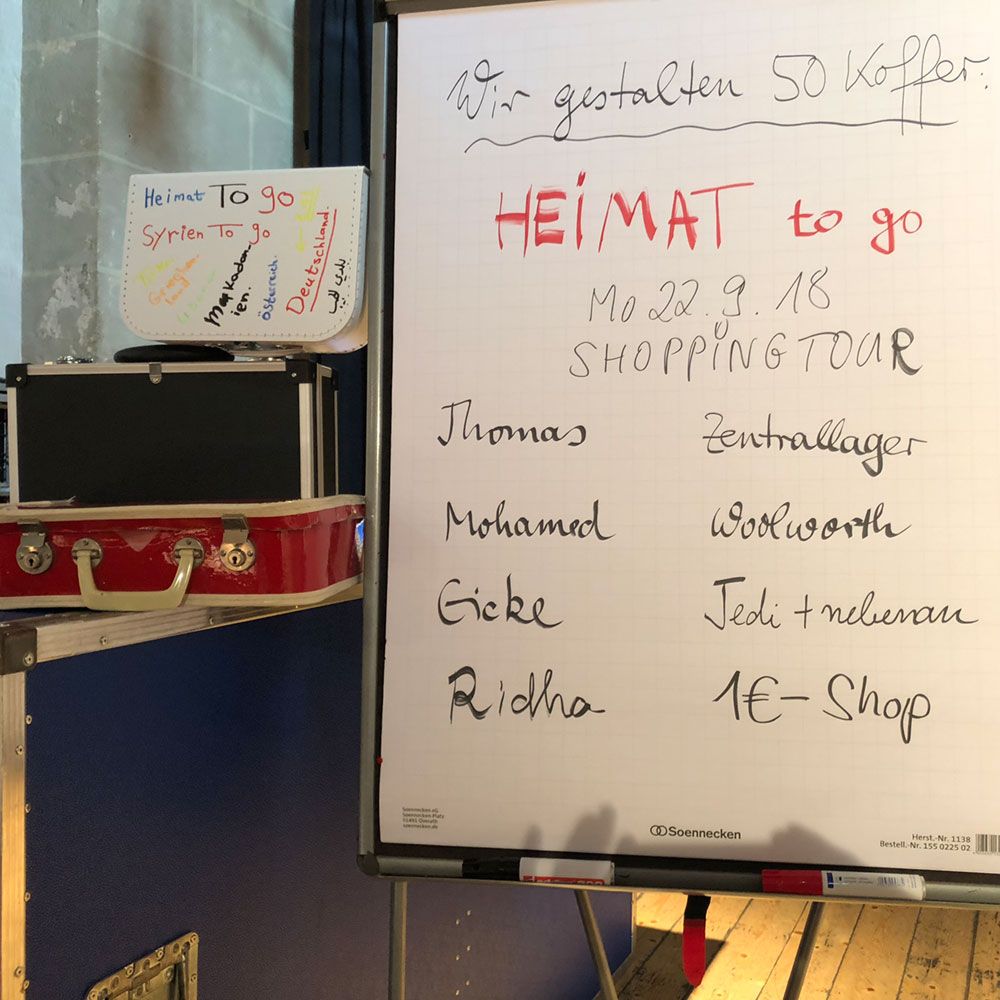 Wir gestalten 50 Koffer:
HEIMAT to go
Mo 22.9.18
SHOPPING TOUR
Thomas Zentrallager
Mohamed Woolworth
Eicke Jedi + nebenan
Ridha 1€- Shop
Soennecken eG
Soennecken-Platz
51491 Overath
soennecken.de
Soennecken
Herst.-Nr. 1138
Bestell.-Nr. 155 0225 02
Heimat To go
Syrien To go
Österreich.
Deutschland.